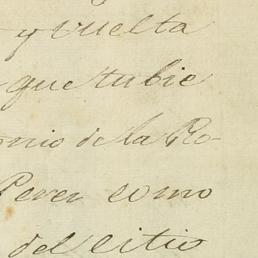 y vuelta
que tubie
onio de la Ro-
Perez como
del citio